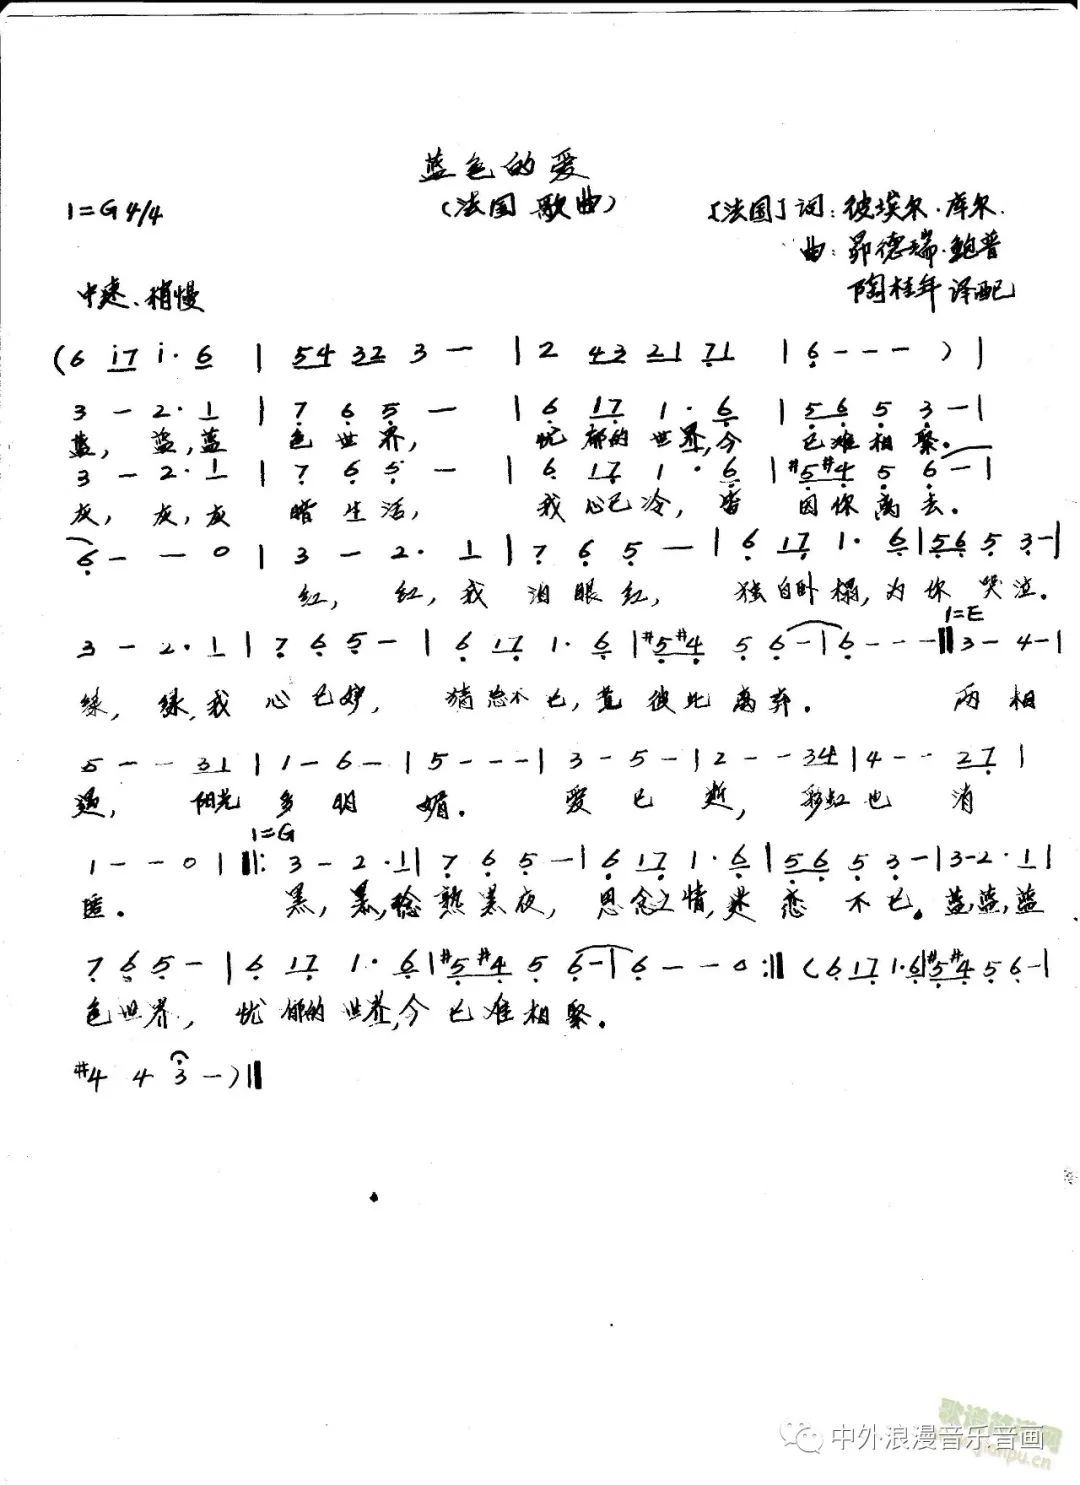 蓝色的爱
1=G 4/4 (法国歌曲) [法国]词:彼埃尔·库尔.
曲:昂德瑞·鲍普
中速、稍慢 陶桂年 译配
(6 i7 i· 6 | 54 32 3 — | 2 43 21 71 | 6 - - - ) |
3 — 2· 1 | 7 6 5 — | 6 17 1· 6 | 56 5 3 — |
蓝, 蓝,蓝 色世界, 忧郁的世界,今 已难相聚.
3 — 2· 1 | 7 6 5 — | 6 17 1· 6 | #5#4 5 6 — |
灰, 灰,灰 暗生活, 我心已冷, 皆 因你离去.
6 - - 0 | 3 — 2· 1 | 7 6 5 — | 6 17 1· 6 | 56 5 3 — |
红, 红,我 泪眼红, 独自卧榻,为你哭泣.
1=E
3 — 2· 1 | 7 6 5 — | 6 17 1· 6 | #5#4 5 6 — | 6 - - - || 3 — 4 — |
绿, 绿,我 心已妒, 猜忌不已,竟彼此离弃. 两相
5 - - 31 | 1 — 6 — | 5 - - - | 3 — 5 — | 2 - - 34 | 4 - - 27 |
遇, 阳光多明媚. 爱已逝, 彩虹也消
1=G
1 - - 0 ||: 3 — 2· 1 | 7 6 5 — | 6 17 1· 6 | 56 5 3 — | 3 — 2· 1 |
匿. 黑,黑,稔熟黑夜, 思念之情,迷恋不已. 蓝,蓝,蓝
7 6 5 — | 6 17 1· 6 | #5#4 5 6 — | 6 - - 0 :|| (6 17 1· 6 | #5#4 5 6 — |
色世界, 忧郁的世界,今已难相聚.
#4 4 3 — ) ||
中外浪漫音乐音画